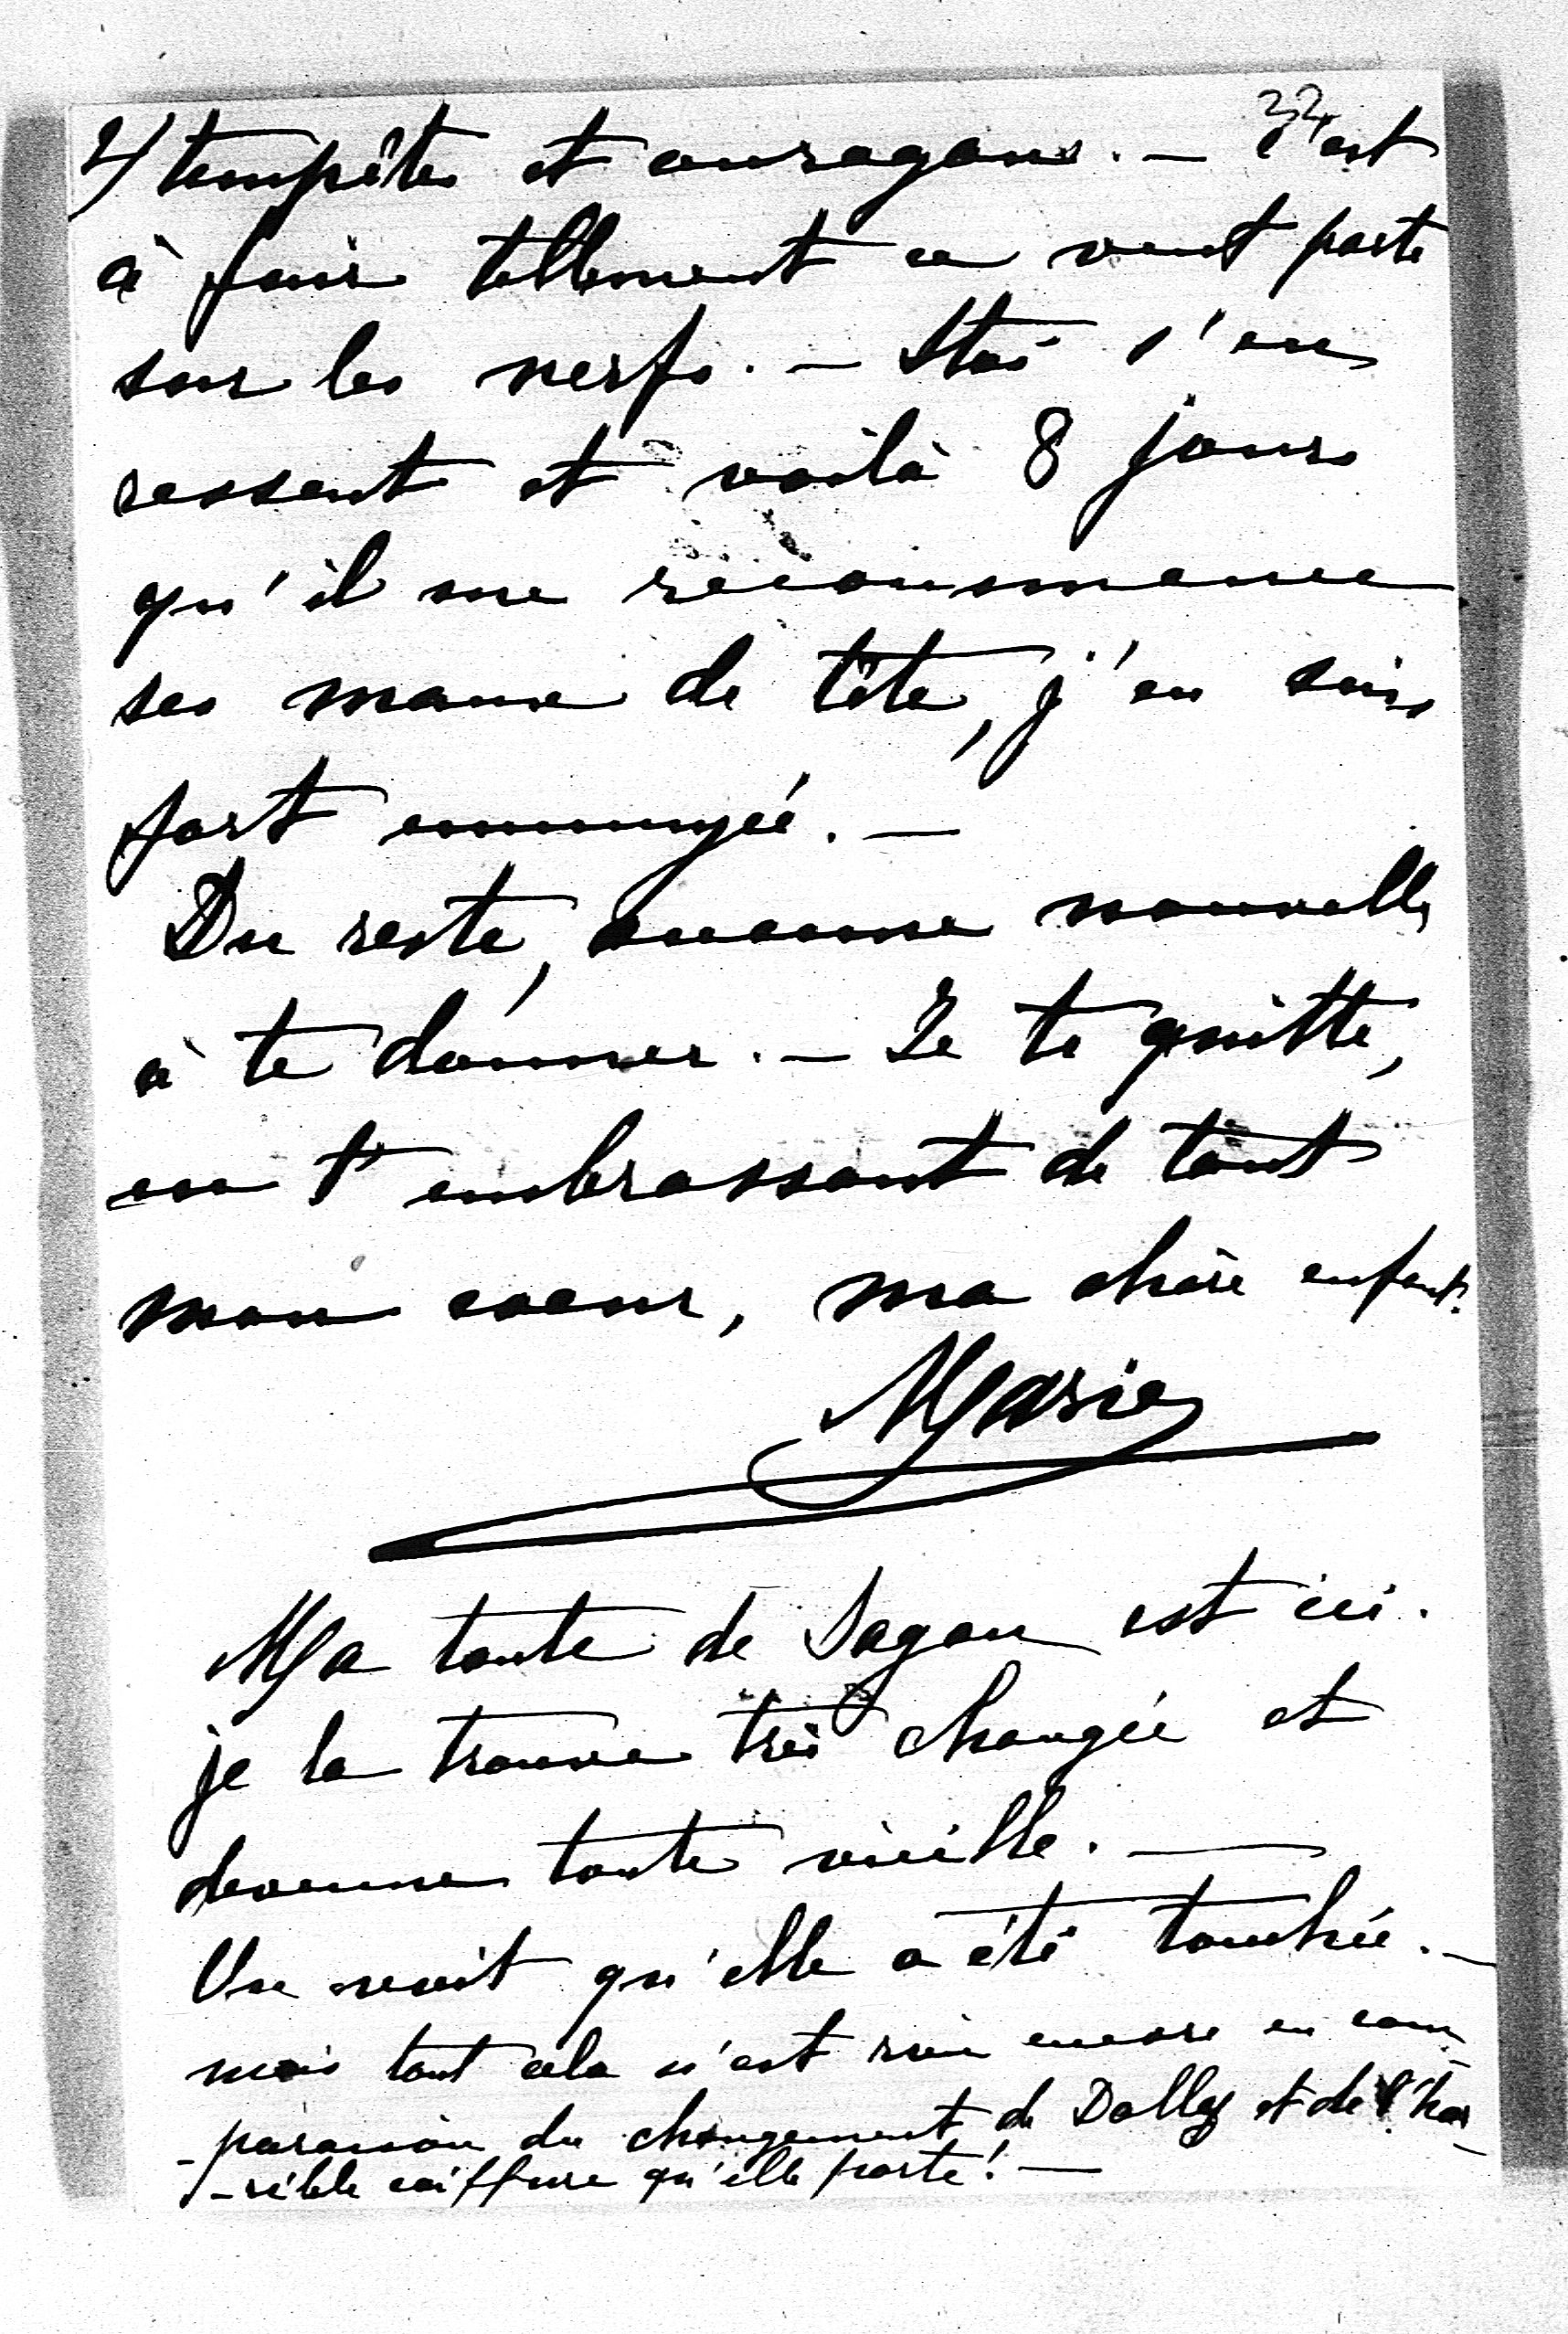 22
4/ tempêtes et ouragans. — C'est
à fuir tellement ce vent porte
sur les nerfs. — Stas s'en
ressent et voilà 8 jours
qu'il me recommence
ses maux de tête, j'en suis
fort ennuyée. —
Du reste, aucune nouvelle
à te donner. — Je te quitte,
en t'embrassant de tout
mon coeur, ma chère enfant.
Marie
Ma tante de Sagan est ici.
je la trouve très changée et
devenue toute vieille. —
On voit qu'elle a été touchée. —
mais tout cela n'est rien encore en com
- paraison du changement de Dolly et de l'hor
- rible coiffure qu'elle porte! —